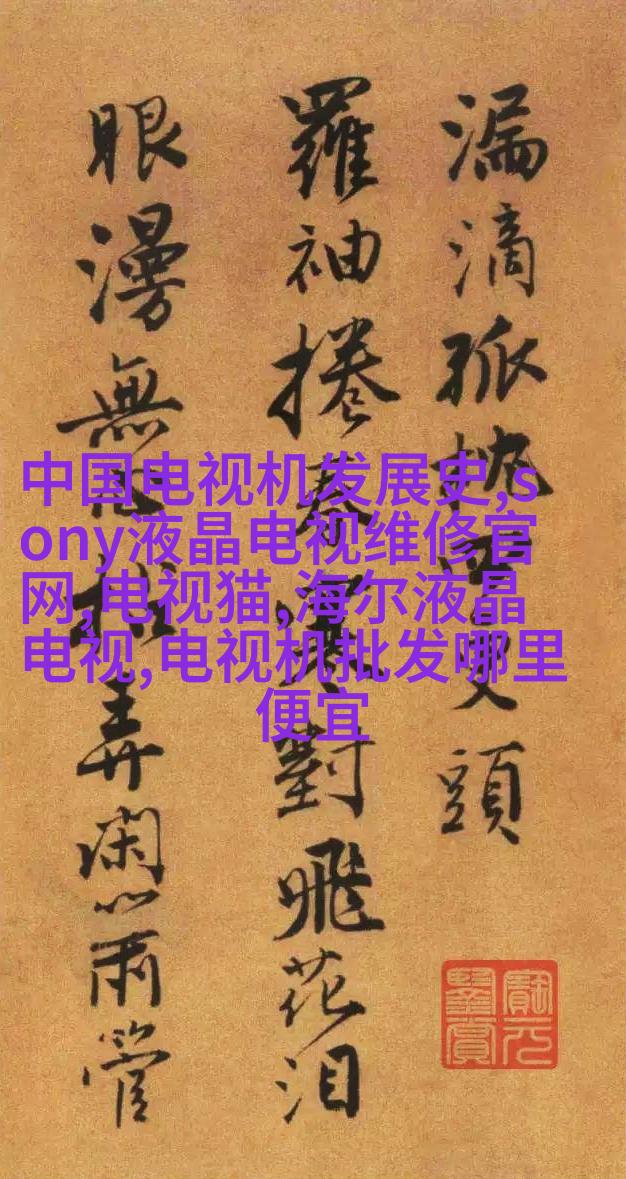 漏滴孤枕頭
羅袖捲春對飛花泪
眼漫無弄閑心兩管
中国电视机发展史,s
ony液晶电视维修官
网,电视猫,海尔液晶
电视,电视机批发哪里
便宜